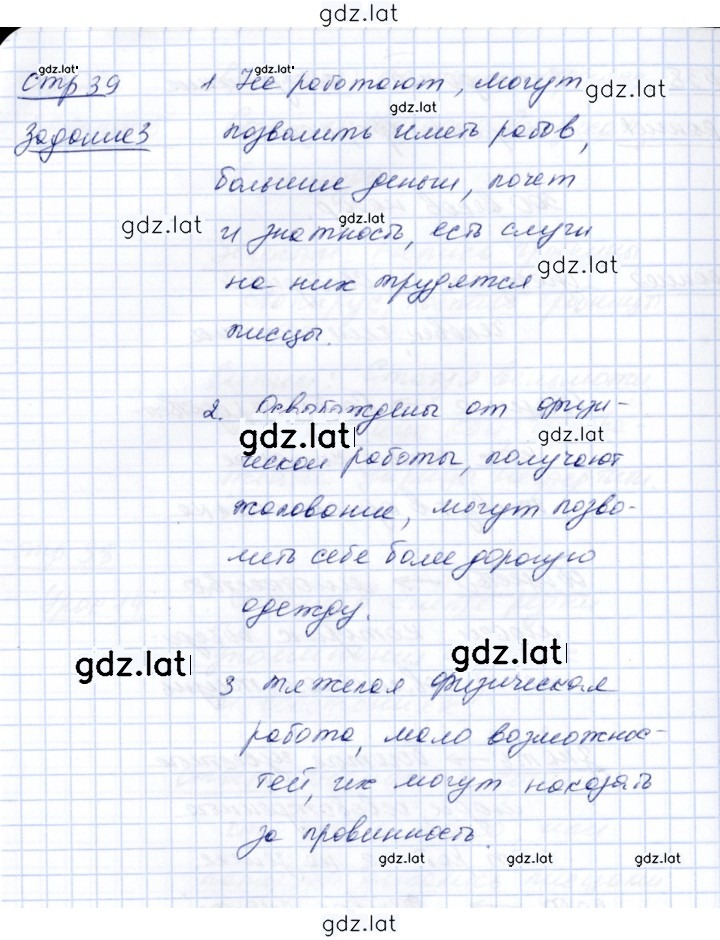 gdz.lat
gdz.lat
gdz.lat
Стр 39 1 Не работают, могут
gdz.lat
gdz.lat
Задание3 позволить иметь рабов,
большие деньги, почет
gdz.lat
gdz.lat
и знатность, есть слуги
gdz.lat
на них трудятся
писцы.
2. Освобождены от физи-
gdz.lat
gdz.lat
ческой работы, получают
жалование, могут позво-
лить себе более дорогую
одежду.
gdz.lat
gdz.lat
3 тяжелая физическая
работа, мало возможнос-
тей, их могут наказать
за провинность.
gdz.lat gdz.lat gdz.lat
gdz.lat